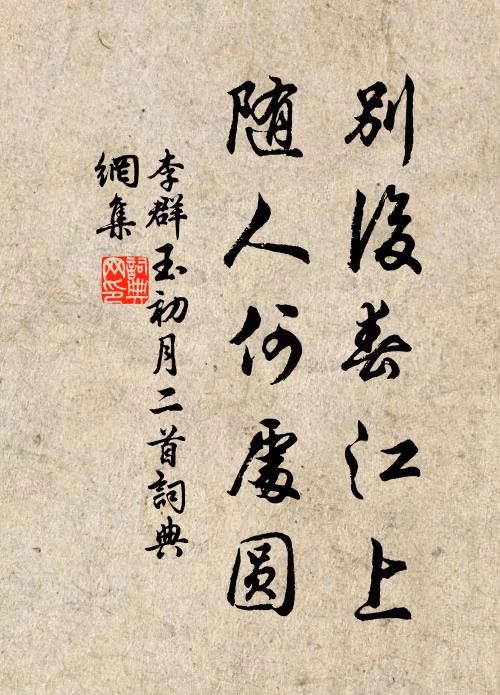 别後春江上
随人何處圆
李群玉初月二首詞典
網集
詞典
网印